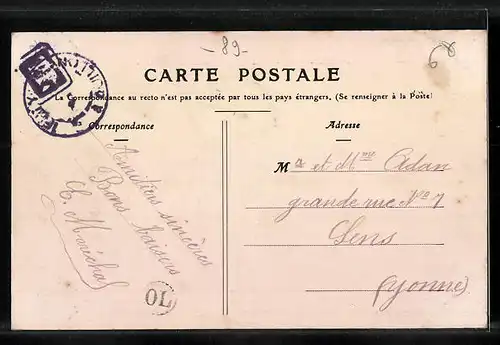 -89-
6
CARTE POSTALE
La Correspondance au recto n'est pas acceptée par tous les pays étrangers. (Se renseigner à la Poste)
Correspondance
Adresse
Amitiés sincères
Bons baisers
C. Maréchal
OL
Mr et Mme Adan
grande rue No 1
Sens
(Yonne)